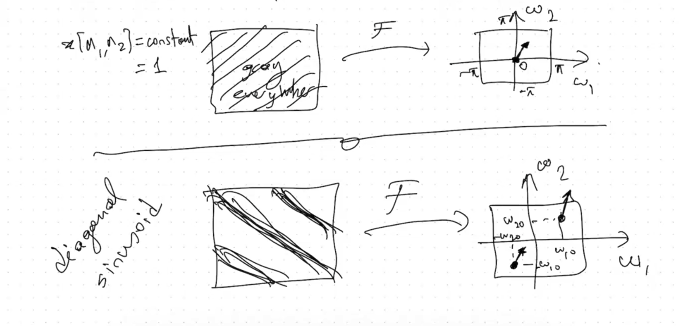 x[n₁,n₂]=constant
= 1
gray
everywher
F
π
ω₂
-π
0
π
ω₁
-π
diagonal
sinusoid
F
ω₂
ω₂₀
-ω₂₀
ω₁₀
-ω₁₀
ω₁